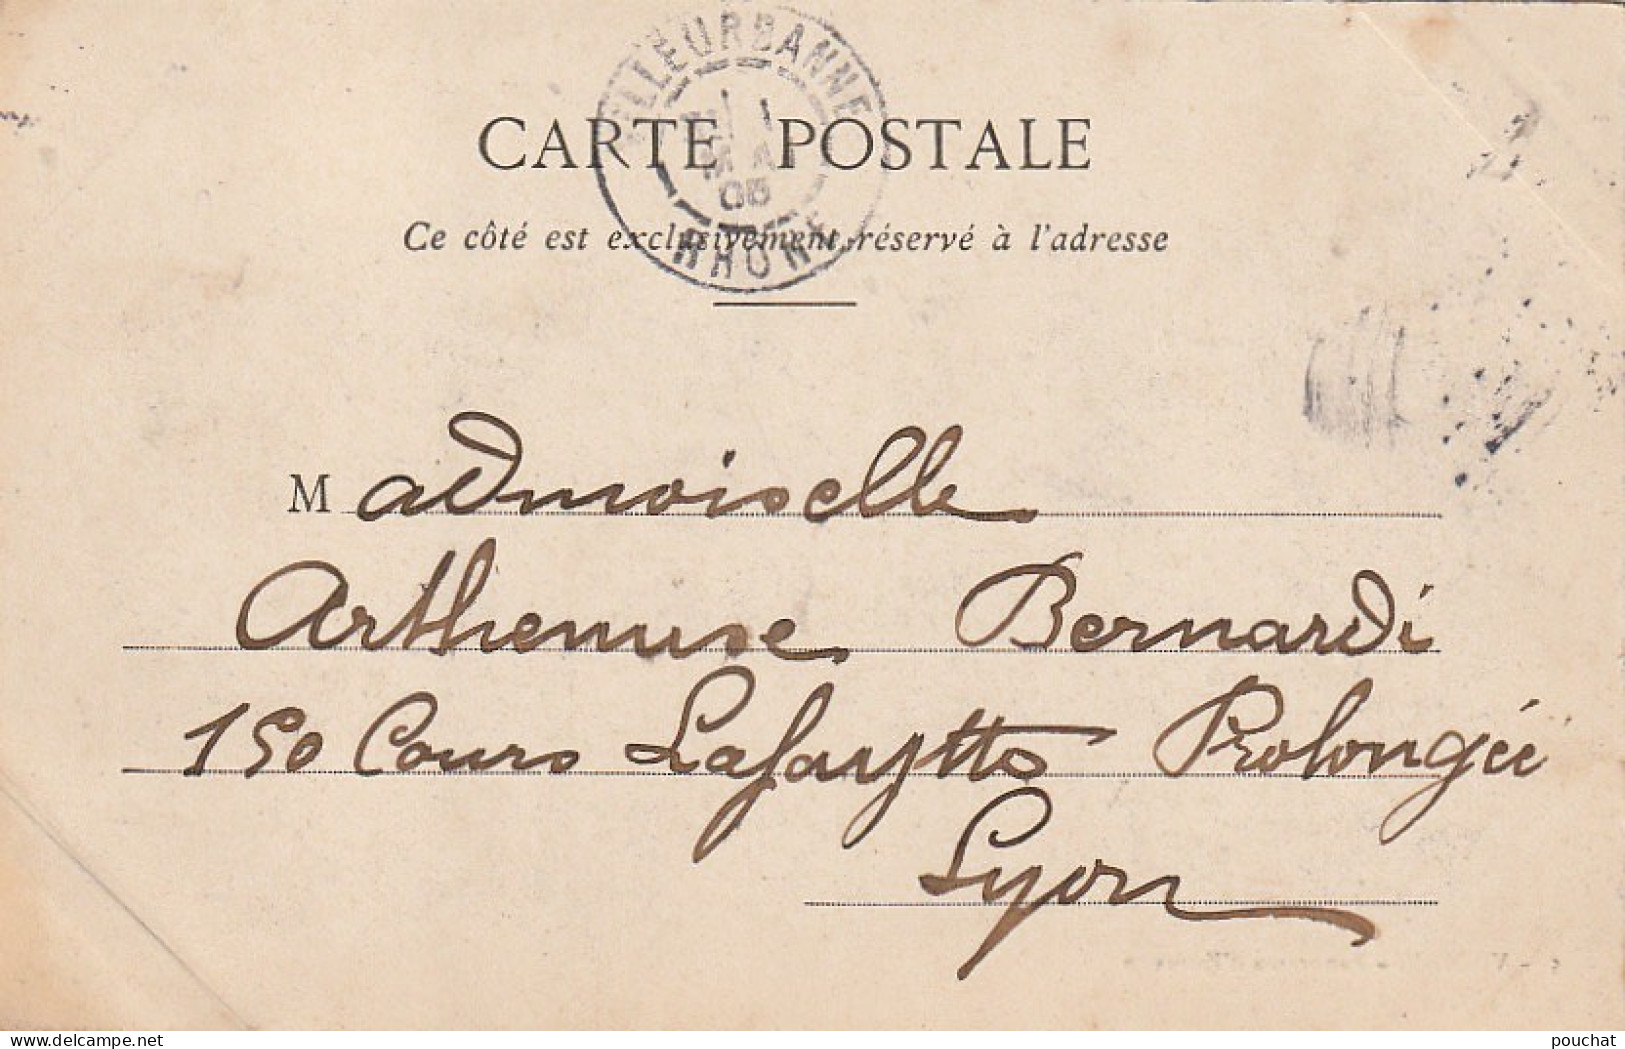 VILLEURBANNE
05
RHONE
CARTE POSTALE
Ce côté est exclusivement réservé à l'adresse
Madmoiselle
Arthemise Bernardi
150 Cours Lafaytte Prolongée
Lyon
delcampe.net
pouchat